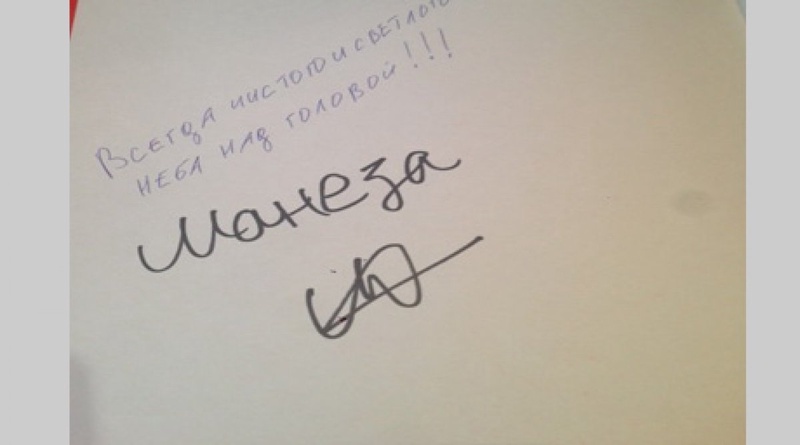 Всегда чистого и светлого
неба над головой!!!
Манеза